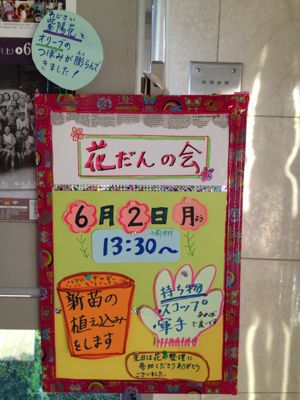 あじさい
紫陽花と
オリーブの
つぼみが膨らんで
きました！
花だんの会
6月2日月より
13:30〜
新苗の
植え込み
をします
持ち物
スコップ
軍手
あれば
で良いです
先日は花苗整理に
参加くださりありがとう
ございました。